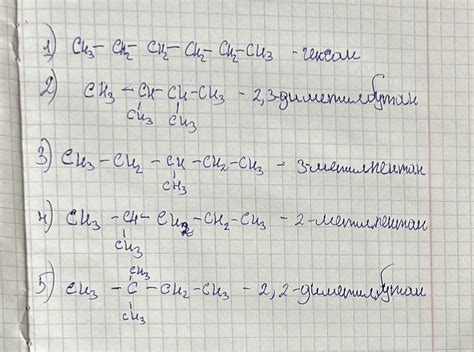 1) CH3 - CH2 - CH2 - CH2 - CH2 - CH3 - гексан
2) CH3 - CH - CH - CH3 - 2,3-диметилбутан
CH3 CH3
3) CH3 - CH2 - CH - CH2 - CH3 - 3-метилпентан
CH3
4) CH3 - CH - CH2 - CH2 - CH3 - 2-метилпентан
CH3
CH3
5) CH3 - C - CH2 - CH3 - 2,2-диметилбутан
CH3